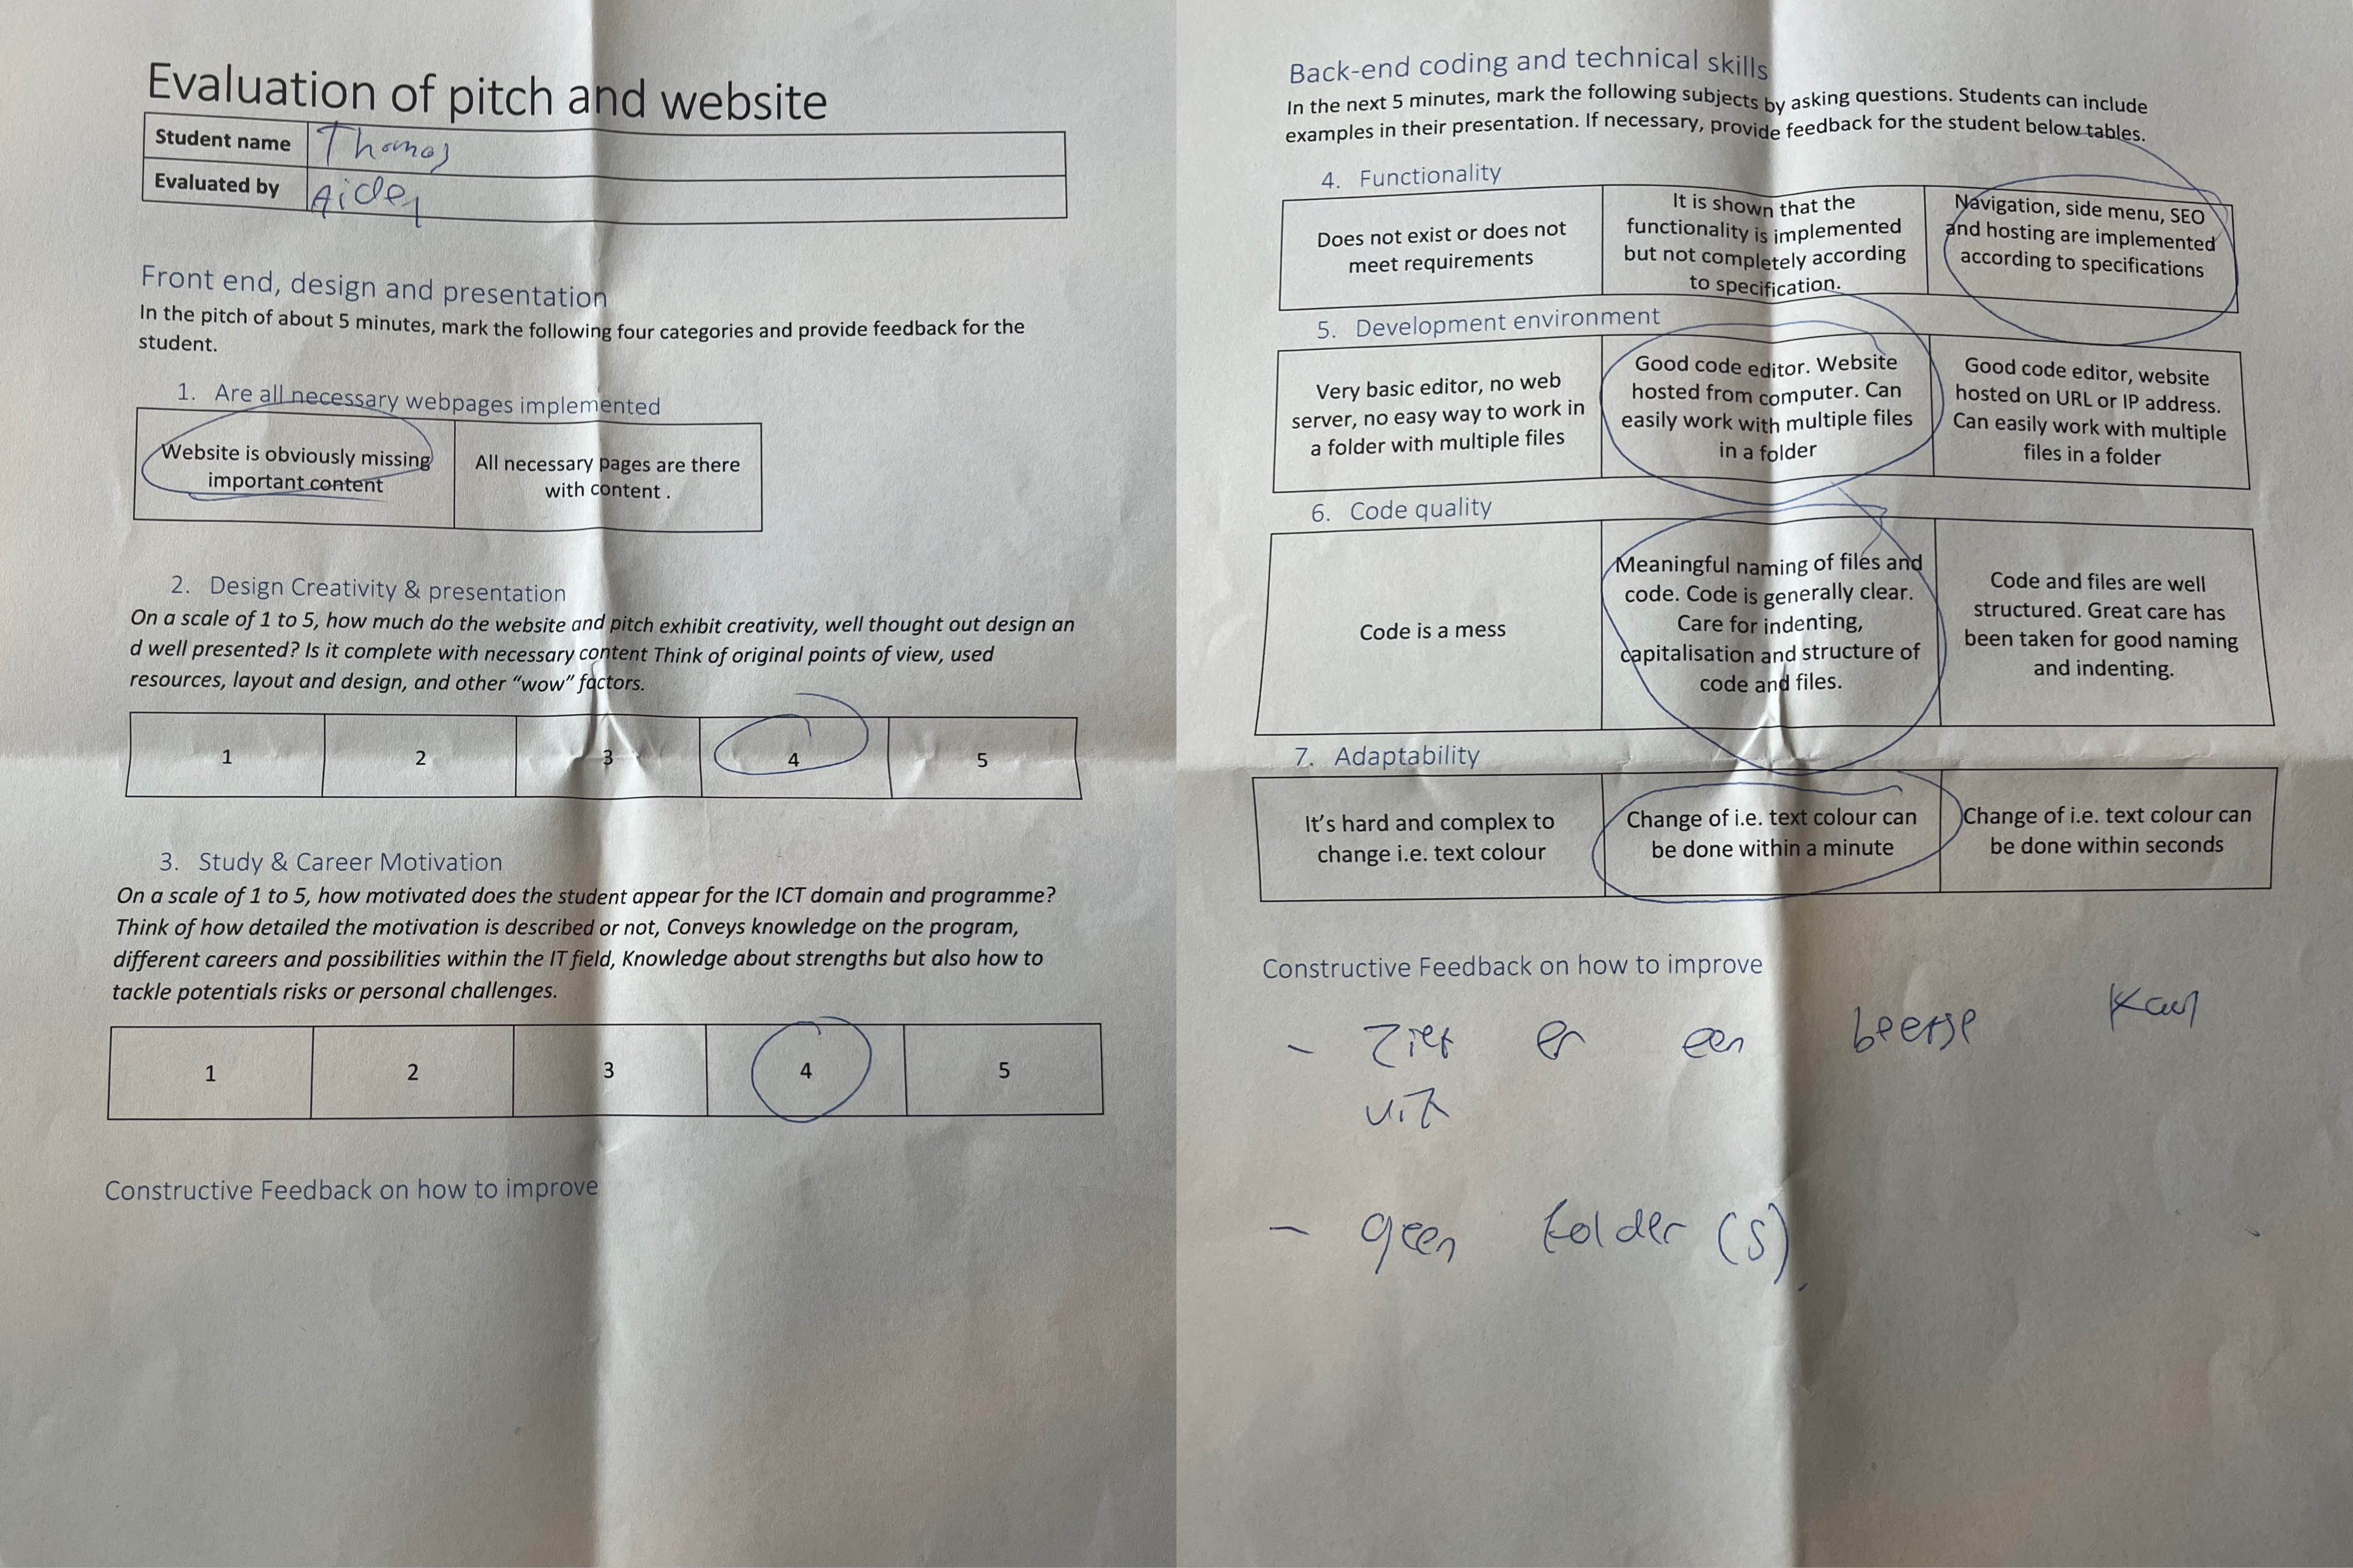 Evaluation of pitch and website
Student name Thomas
Evaluated by Aiden
Front end, design and presentation
In the pitch of about 5 minutes, mark the following four categories and provide feedback for the
student.
1. Are all necessary webpages implemented
Website is obviously missing
important content
All necessary pages are there
with content .
2. Design Creativity & presentation
On a scale of 1 to 5, how much do the website and pitch exhibit creativity, well thought out design an
d well presented? Is it complete with necessary content Think of original points of view, used
resources, layout and design, and other “wow” factors.
1 2 3 4 5
3. Study & Career Motivation
On a scale of 1 to 5, how motivated does the student appear for the ICT domain and programme?
Think of how detailed the motivation is described or not, Conveys knowledge on the program,
different careers and possibilities within the IT field, Knowledge about strengths but also how to
tackle potentials risks or personal challenges.
1 2 3 4 5
Constructive Feedback on how to improve
Back-end coding and technical skills
In the next 5 minutes, mark the following subjects by asking questions. Students can include
examples in their presentation. If necessary, provide feedback for the student below tables.
4. Functionality
Does not exist or does not
meet requirements
It is shown that the
functionality is implemented
but not completely according
to specification.
Navigation, side menu, SEO
and hosting are implemented
according to specifications
5. Development environment
Very basic editor, no web
server, no easy way to work in
a folder with multiple files
Good code editor. Website
hosted from computer. Can
easily work with multiple files
in a folder
Good code editor, website
hosted on URL or IP address.
Can easily work with multiple
files in a folder
6. Code quality
Code is a mess
Meaningful naming of files and
code. Code is generally clear.
Care for indenting,
capitalisation and structure of
code and files.
Code and files are well
structured. Great care has
been taken for good naming
and indenting.
7. Adaptability
It’s hard and complex to
change i.e. text colour
Change of i.e. text colour can
be done within a minute
Change of i.e. text colour can
be done within seconds
Constructive Feedback on how to improve
- Ziet er een beetje
uit
- geen folder (s)